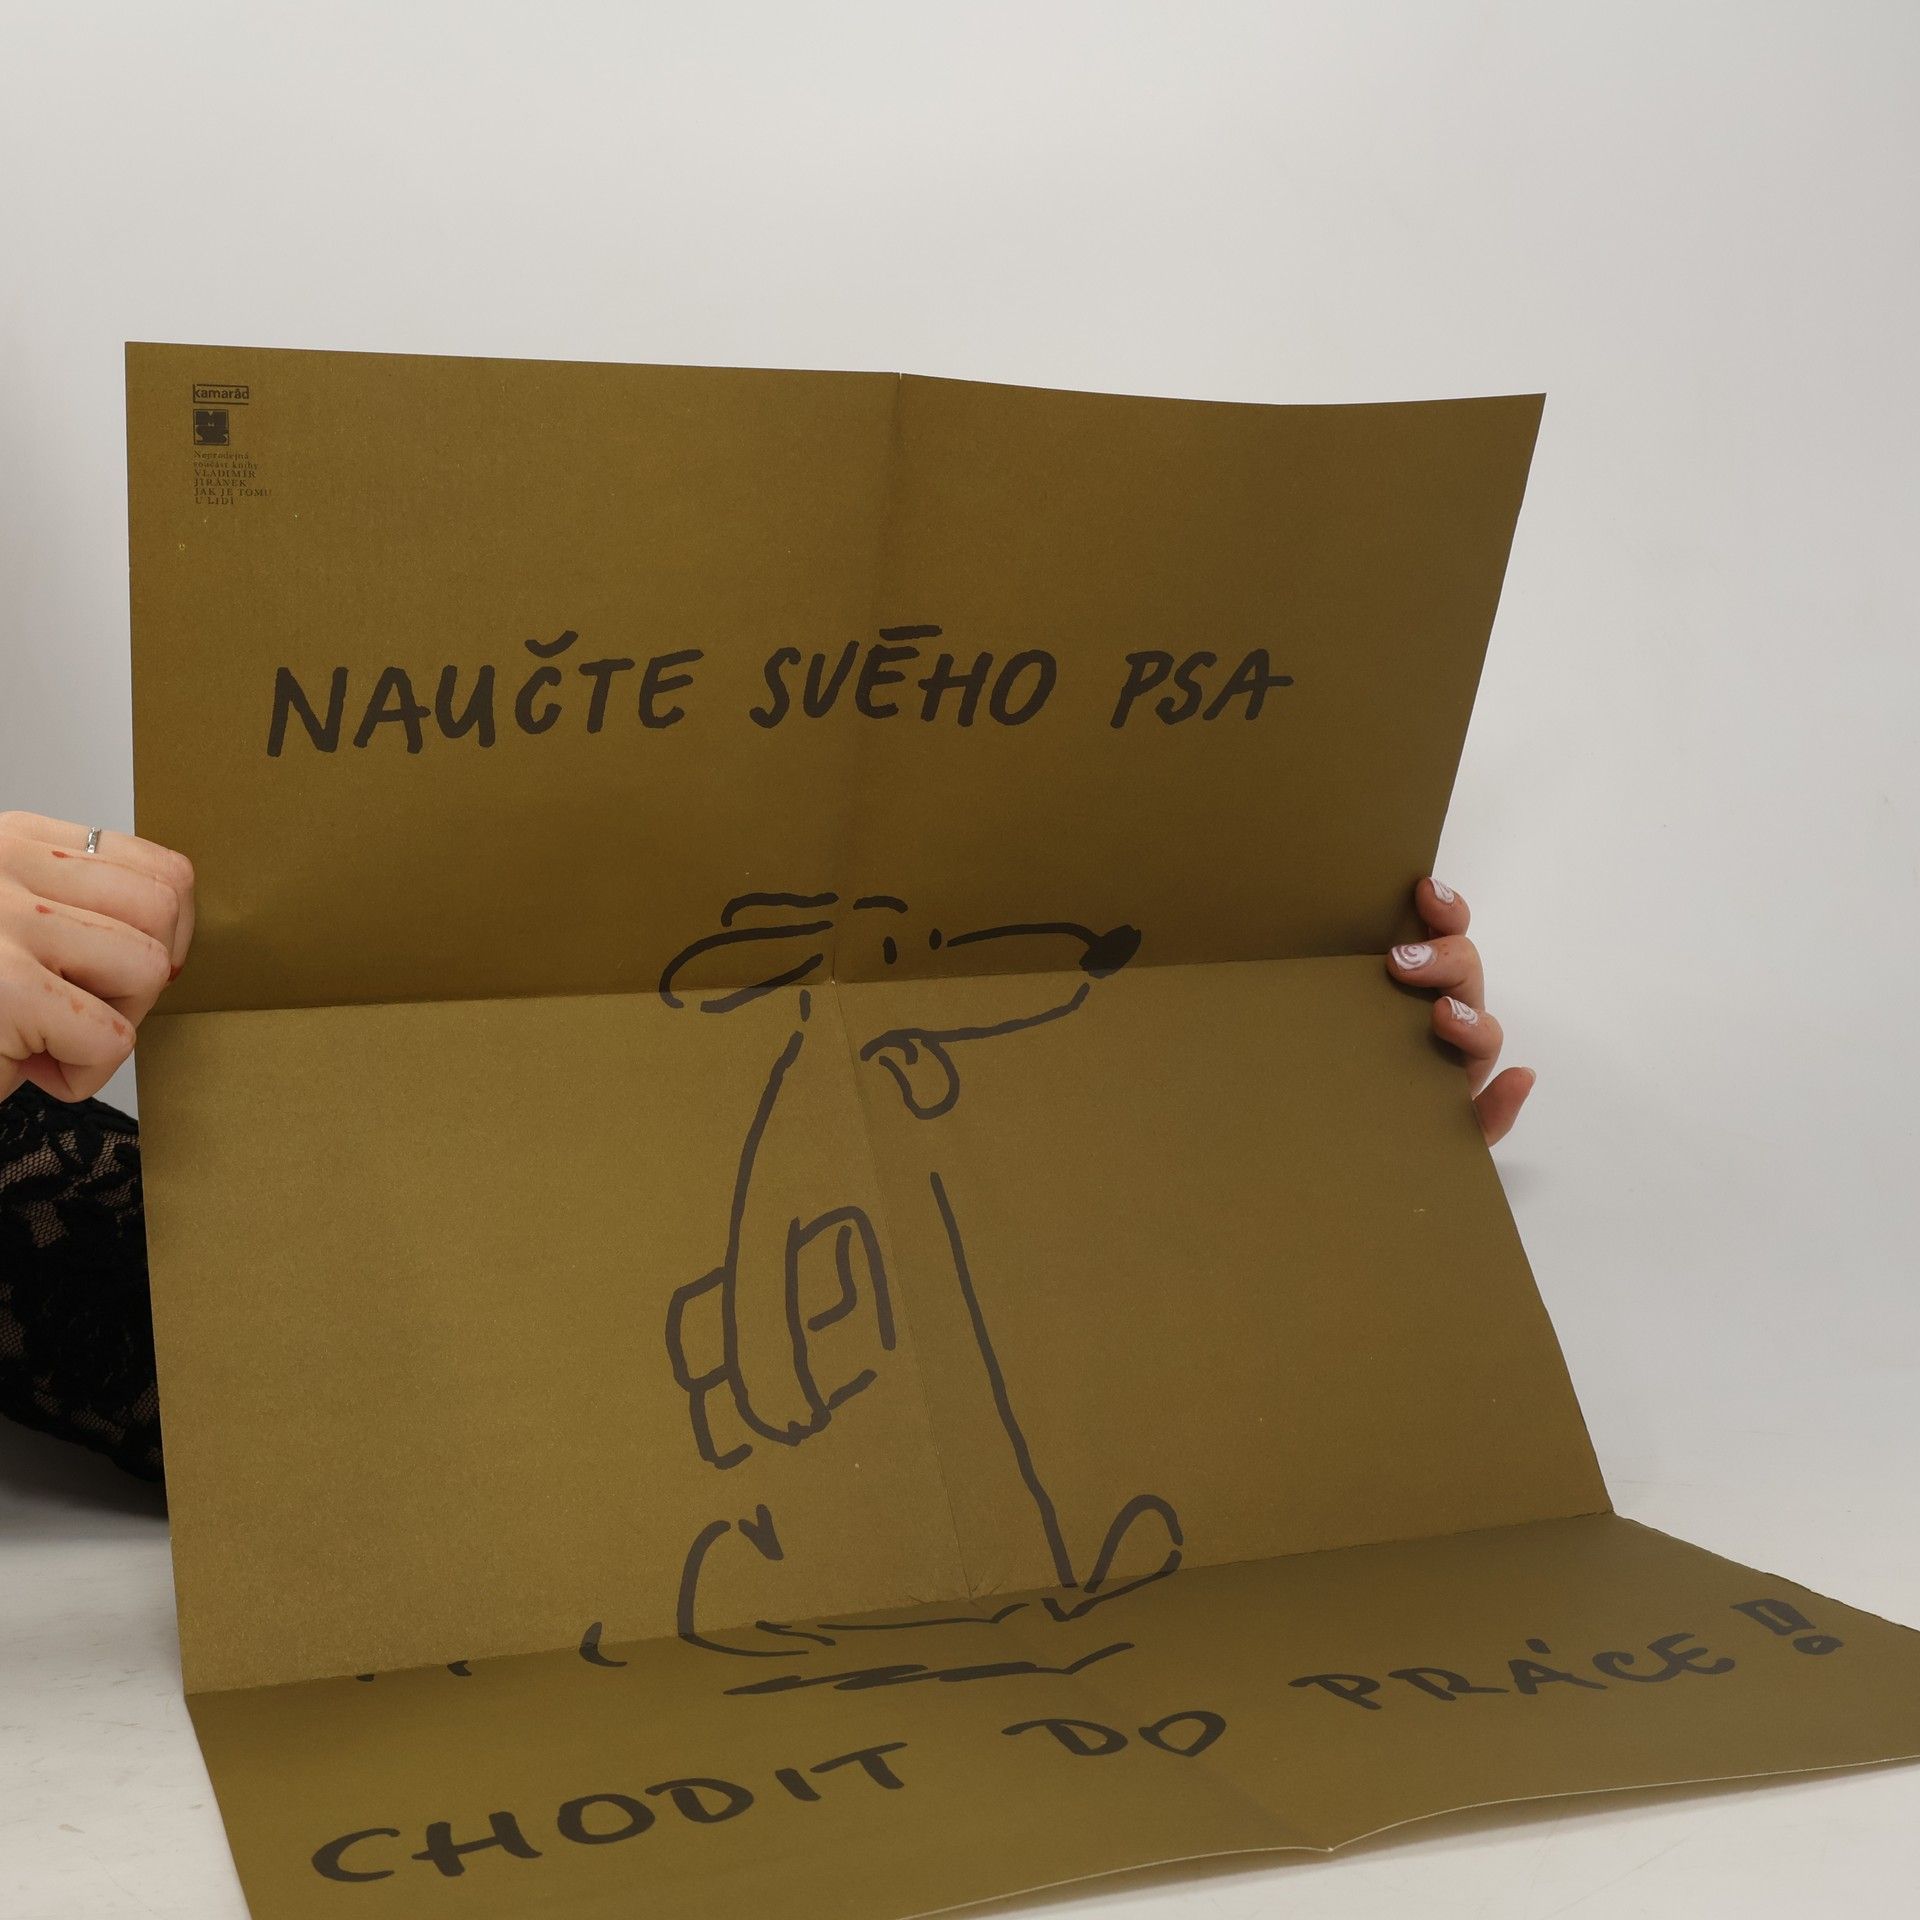 kamarád
Neprodejná
součást knihy
VLADIMÍR
JIRÁNEK
JAK JE TOMU
U LIDÍ
NAUČTE SVÉHO PSA
CHODIT DO PRÁCE!